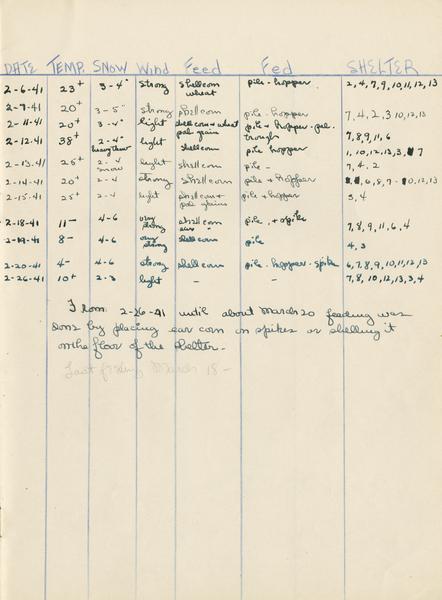 DATE TEMP. SNOW Wind Feed Fed SHELTER
2-6-41 23+ 3-4" strong shell corn wheat pile - hopper 2, 4, 7, 9, 10, 11, 12, 13
2-7-41 20+ 3-5" strong shell corn pile - hopper 7, 4, 2, 3 10, 12, 13
2-11-41 20+ 3-4" light shell corn + wheat pile + hopper - 7, 8, 9, 11, 6
2-12-41 38+ 2-4" light shell corn trough pile hopper 1, 10, 12, 13, 3, 7
2-13-41 25+ 2-4 snow light shell corn pile - 7, 4, 2
2-14-41 20+ 2-4 strong shell corn pile + hopper 6, 8, 7 - 10, 12, 13
2-15-41 25+ 2-4 light shell corn + pile + hopper 3, 4
2-18-41 11- 4-6 very strong shell corn ear pile, + spike 7, 8, 9, 11, 6, 4
2-19-41 8- 4-6 very strong shell corn pile 4, 3
2-20-41 4- 4-6 strong shell corn pile - hopper - spike 6, 7, 8, 9, 10, 11, 12, 13
2-26-41 10+ 2-3 light - - 7, 8, 10, 12, 13, 3, 4
From 2-26-41 until about March 20 feeding was
done by placing ear corn on spikes or shelling it
on the floor of the shelter.
Last feeding March 18 -